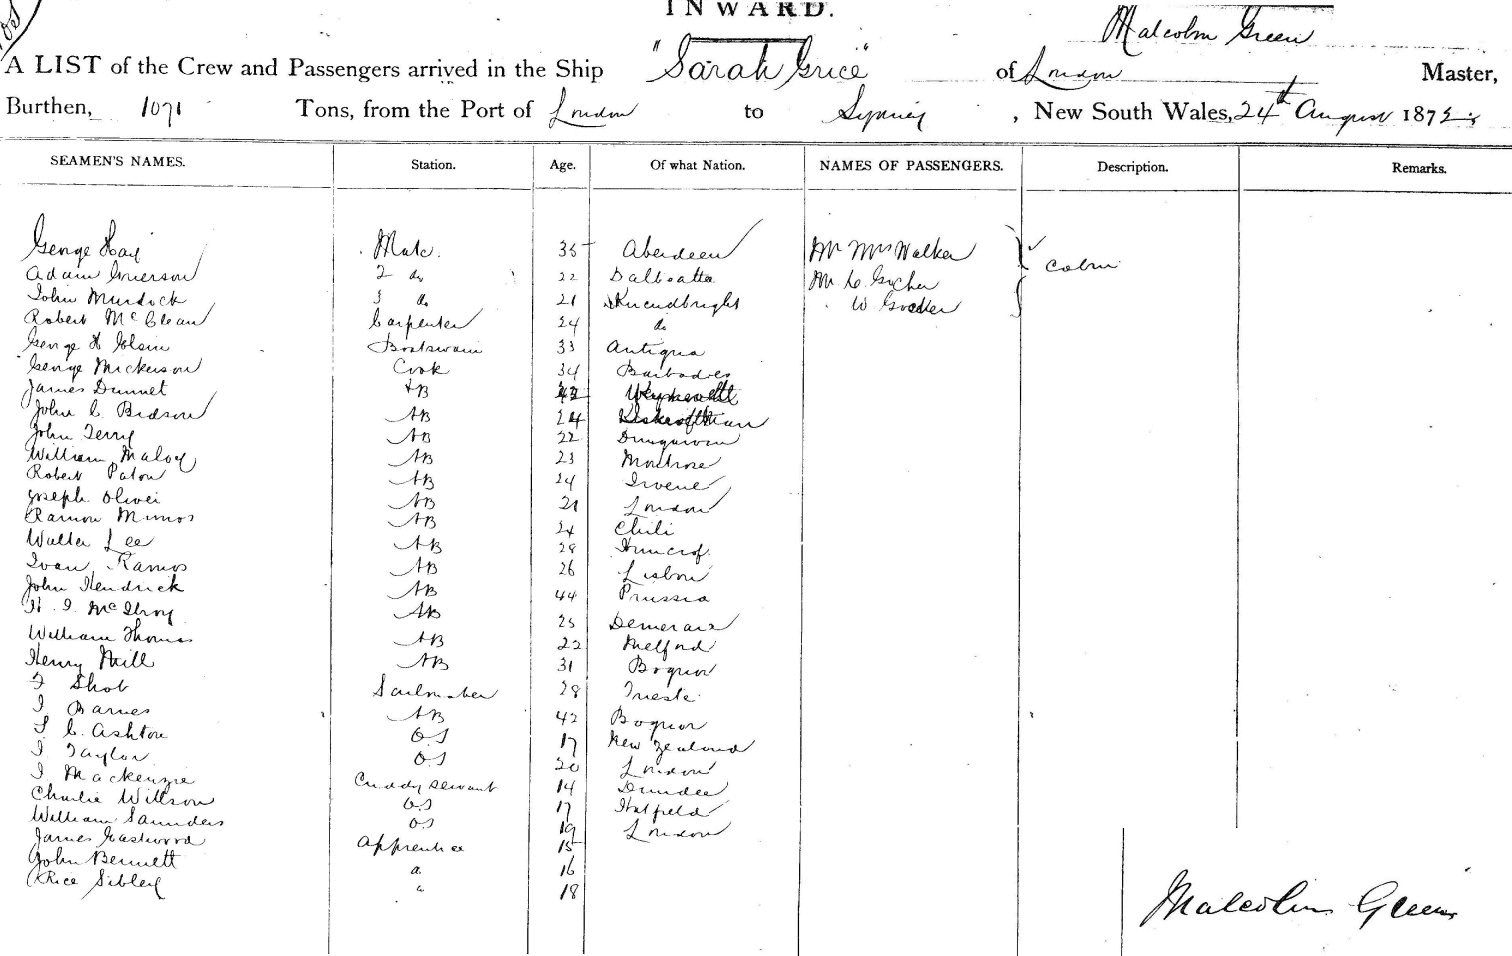 INWARD.
Malcolm Green
A LIST of the Crew and Passengers arrived in the Ship "Sarah Grice" of London Master,
Burthen, 1071 Tons, from the Port of London to Sydney, New South Wales, 24th August 187
SEAMEN'S NAMES. Station. Age. Of what Nation. NAMES OF PASSENGERS. Description. Remarks.
George Hay Mate. 35 Aberdeen Mr Mrs Walker
Adam Grierson 2 do 22 Dalbeattie Mr C Cabin
John Murdock 3 do 21 Kircudbright W
Robert McClean Carpenter 24 do
George H Boatswain 33 Antigua
George Mickerson Cook 34 Barbadoes
James Dunnet AB 42
John C Bidson AB 24
John Terry AB 22 Dungarvon
William Maloy AB 23 Montrose
Robert Paton AB 24 Irvine
Joseph Oliver AB 21 London
Ramon AB 24 Chili
Walter Lee AB 28
Ivan Ramos AB 26 Lisbon
John Hendrick AB 44 Prussia
McIlroy AB 25 Demerara
William Thomas AB 22 Melford
Henry Mill AB 31 Bognor
Shob Sailmaker 28 Trieste
Barnes AB 42 Bognor
C. Ashton OS 17 New Zealand
Taylor OS 20 London
Mackenzie Cuddy servant 14 Dundee
Charlie Willson OS 17 Hatfield
William Saunders OS 19 London
James Eastwood Apprentice 15
John Bennett 16
Rice Sibley " 18
Malcolm Green